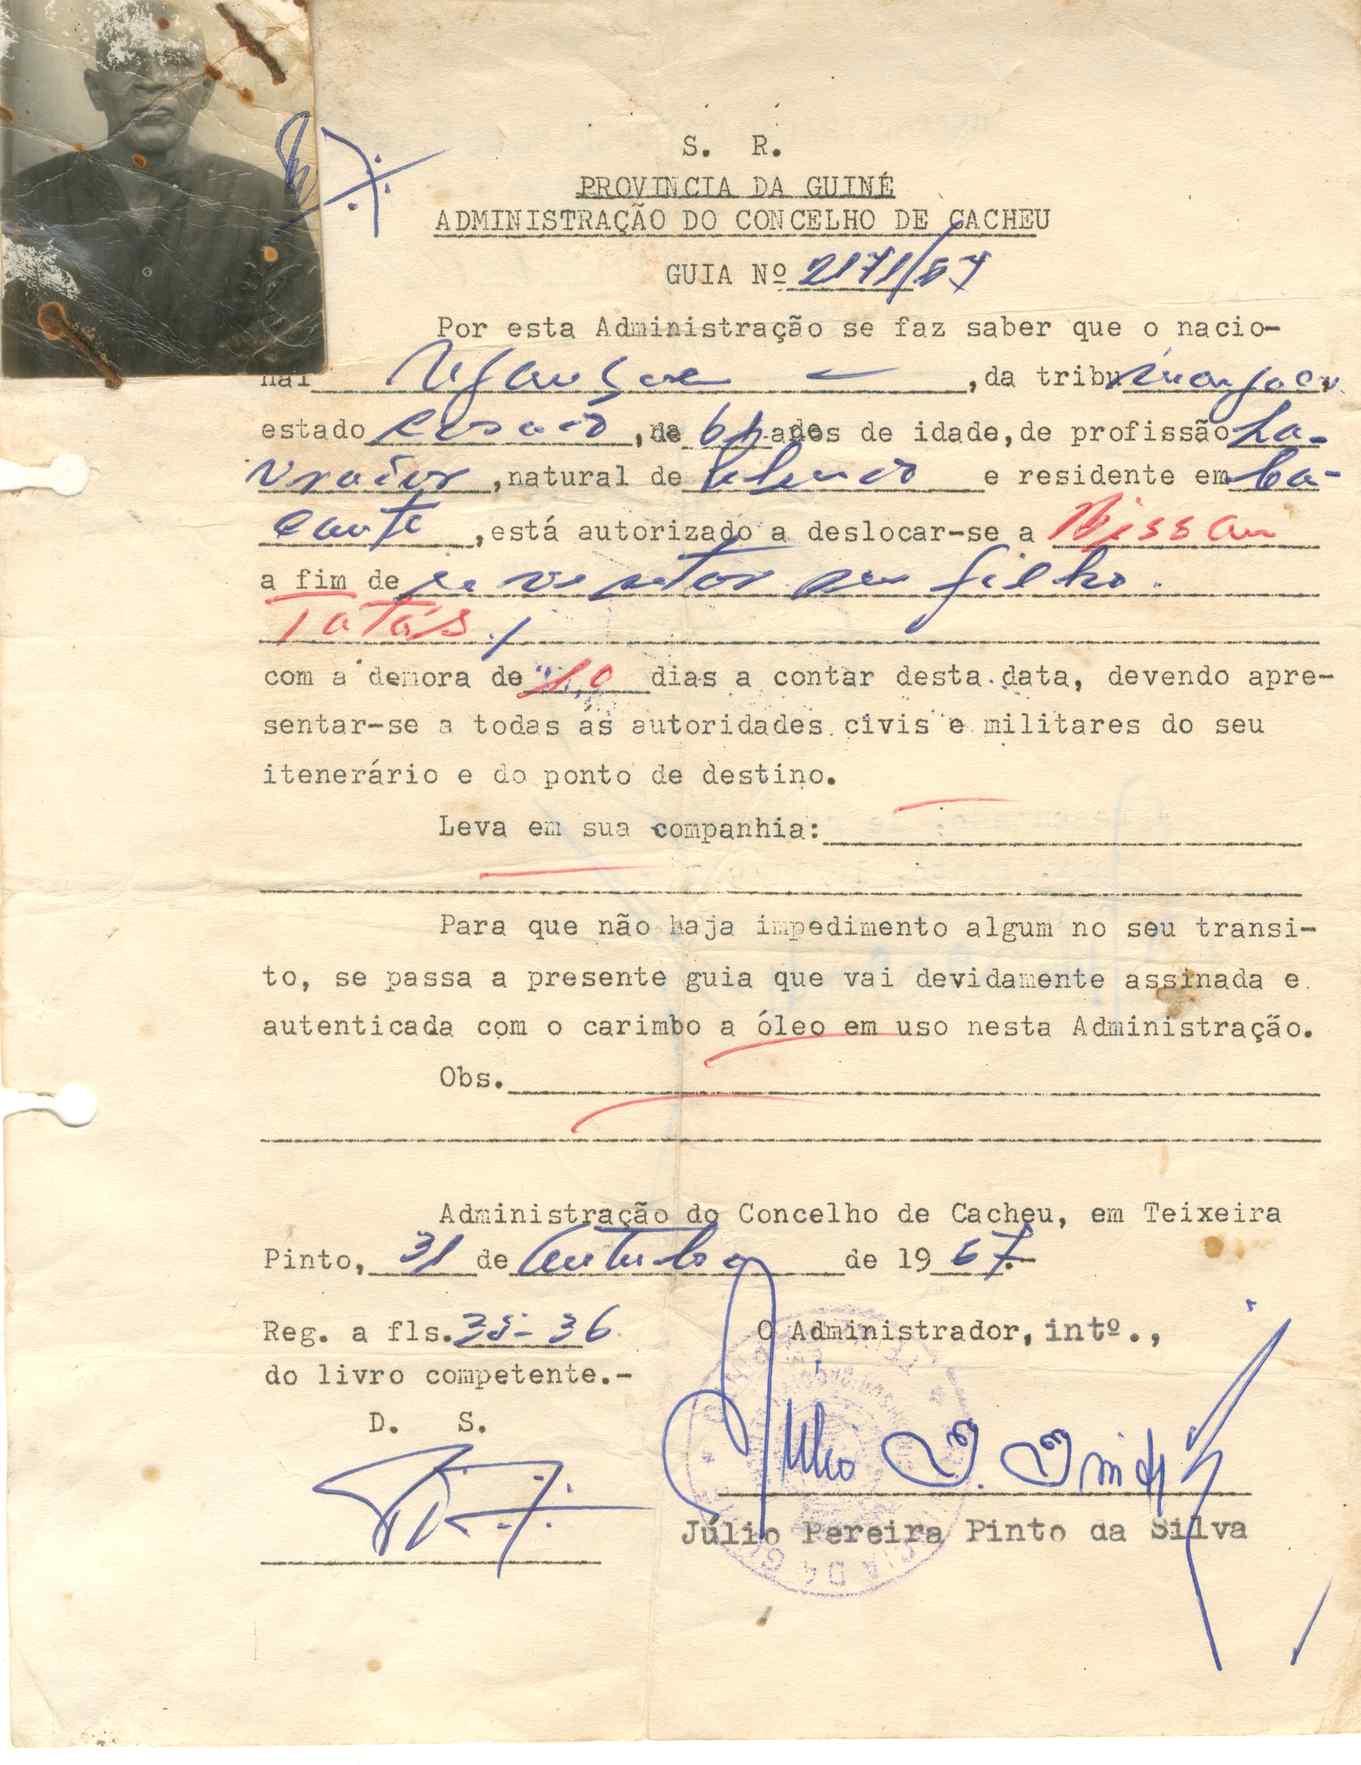 S. R.
PROVINCIA DA GUINÉ
ADMINISTRAÇÃO DO CONCELHO DE CACHEU
GUIA Nº 2171/67
Por esta Administração se faz saber que o nacio-
nal , da tribu manjaca,
estado casado, de anos de idade, de profissão La-
vrador, natural de e residente em Ca-
cante, está autorizado a deslocar-se a Bissau
a fim de seu filho.
Tatás./
com a demora de 10 dias a contar desta data, devendo apre-
sentar-se a todas as autoridades civis e militares do seu
itenerário e do ponto de destino.
Leva em sua companhia:
Para que não haja impedimento algum no seu transi-
to, se passa a presente guia que vai devidamente assinada e
autenticada com o carimbo a óleo em uso nesta Administração.
Obs.
Administração do Concelho de Cacheu, em Teixeira
Pinto, 31 de Outubro de 1967.-
Reg. a fls. 35-36 O Administrador, intº.,
do livro competente.-
D. S.
Júlio Pereira Pinto da Silva